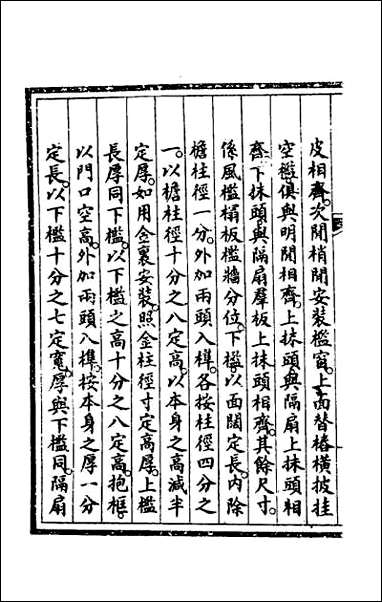 皮相齊。次間梢間安裝檻窗。上面替樁橫披挂
空檻俱與明間相齊。上抹頭與隔扇上抹頭相
齊。下抹頭與隔扇羣板上抹頭相齊。其餘尺寸。
係風檻榻板檻牆分位。下檻。以面闊定長。內除
檐柱徑一分。外加兩頭入榫。各按柱徑四分之
一。以檐柱徑十分之八定高。以本身之高減半
定厚。如用金裏安裝。照金柱徑寸定高厚。上檻
長厚同下檻。以下檻之高十分之八定高。抱框。
以門口空高。外加兩頭入榫。按本身之厚一分
定長。以下檻十分之七定寬。厚與下檻同。隔扇